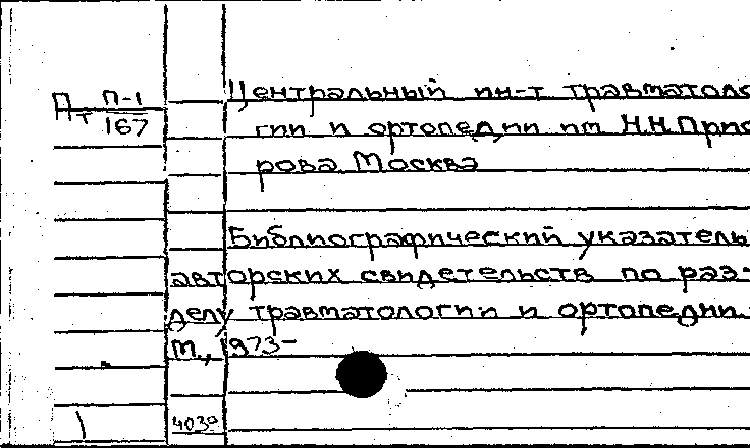 Пт П-1/167
Центральный ин-т травматоло
гии и ортопедии им Н.Н.Прио
рова Москва
Библиографический указатель
авторских свидетельств по раз-
делу травматологии и ортопедии.
М., 1973-
403º